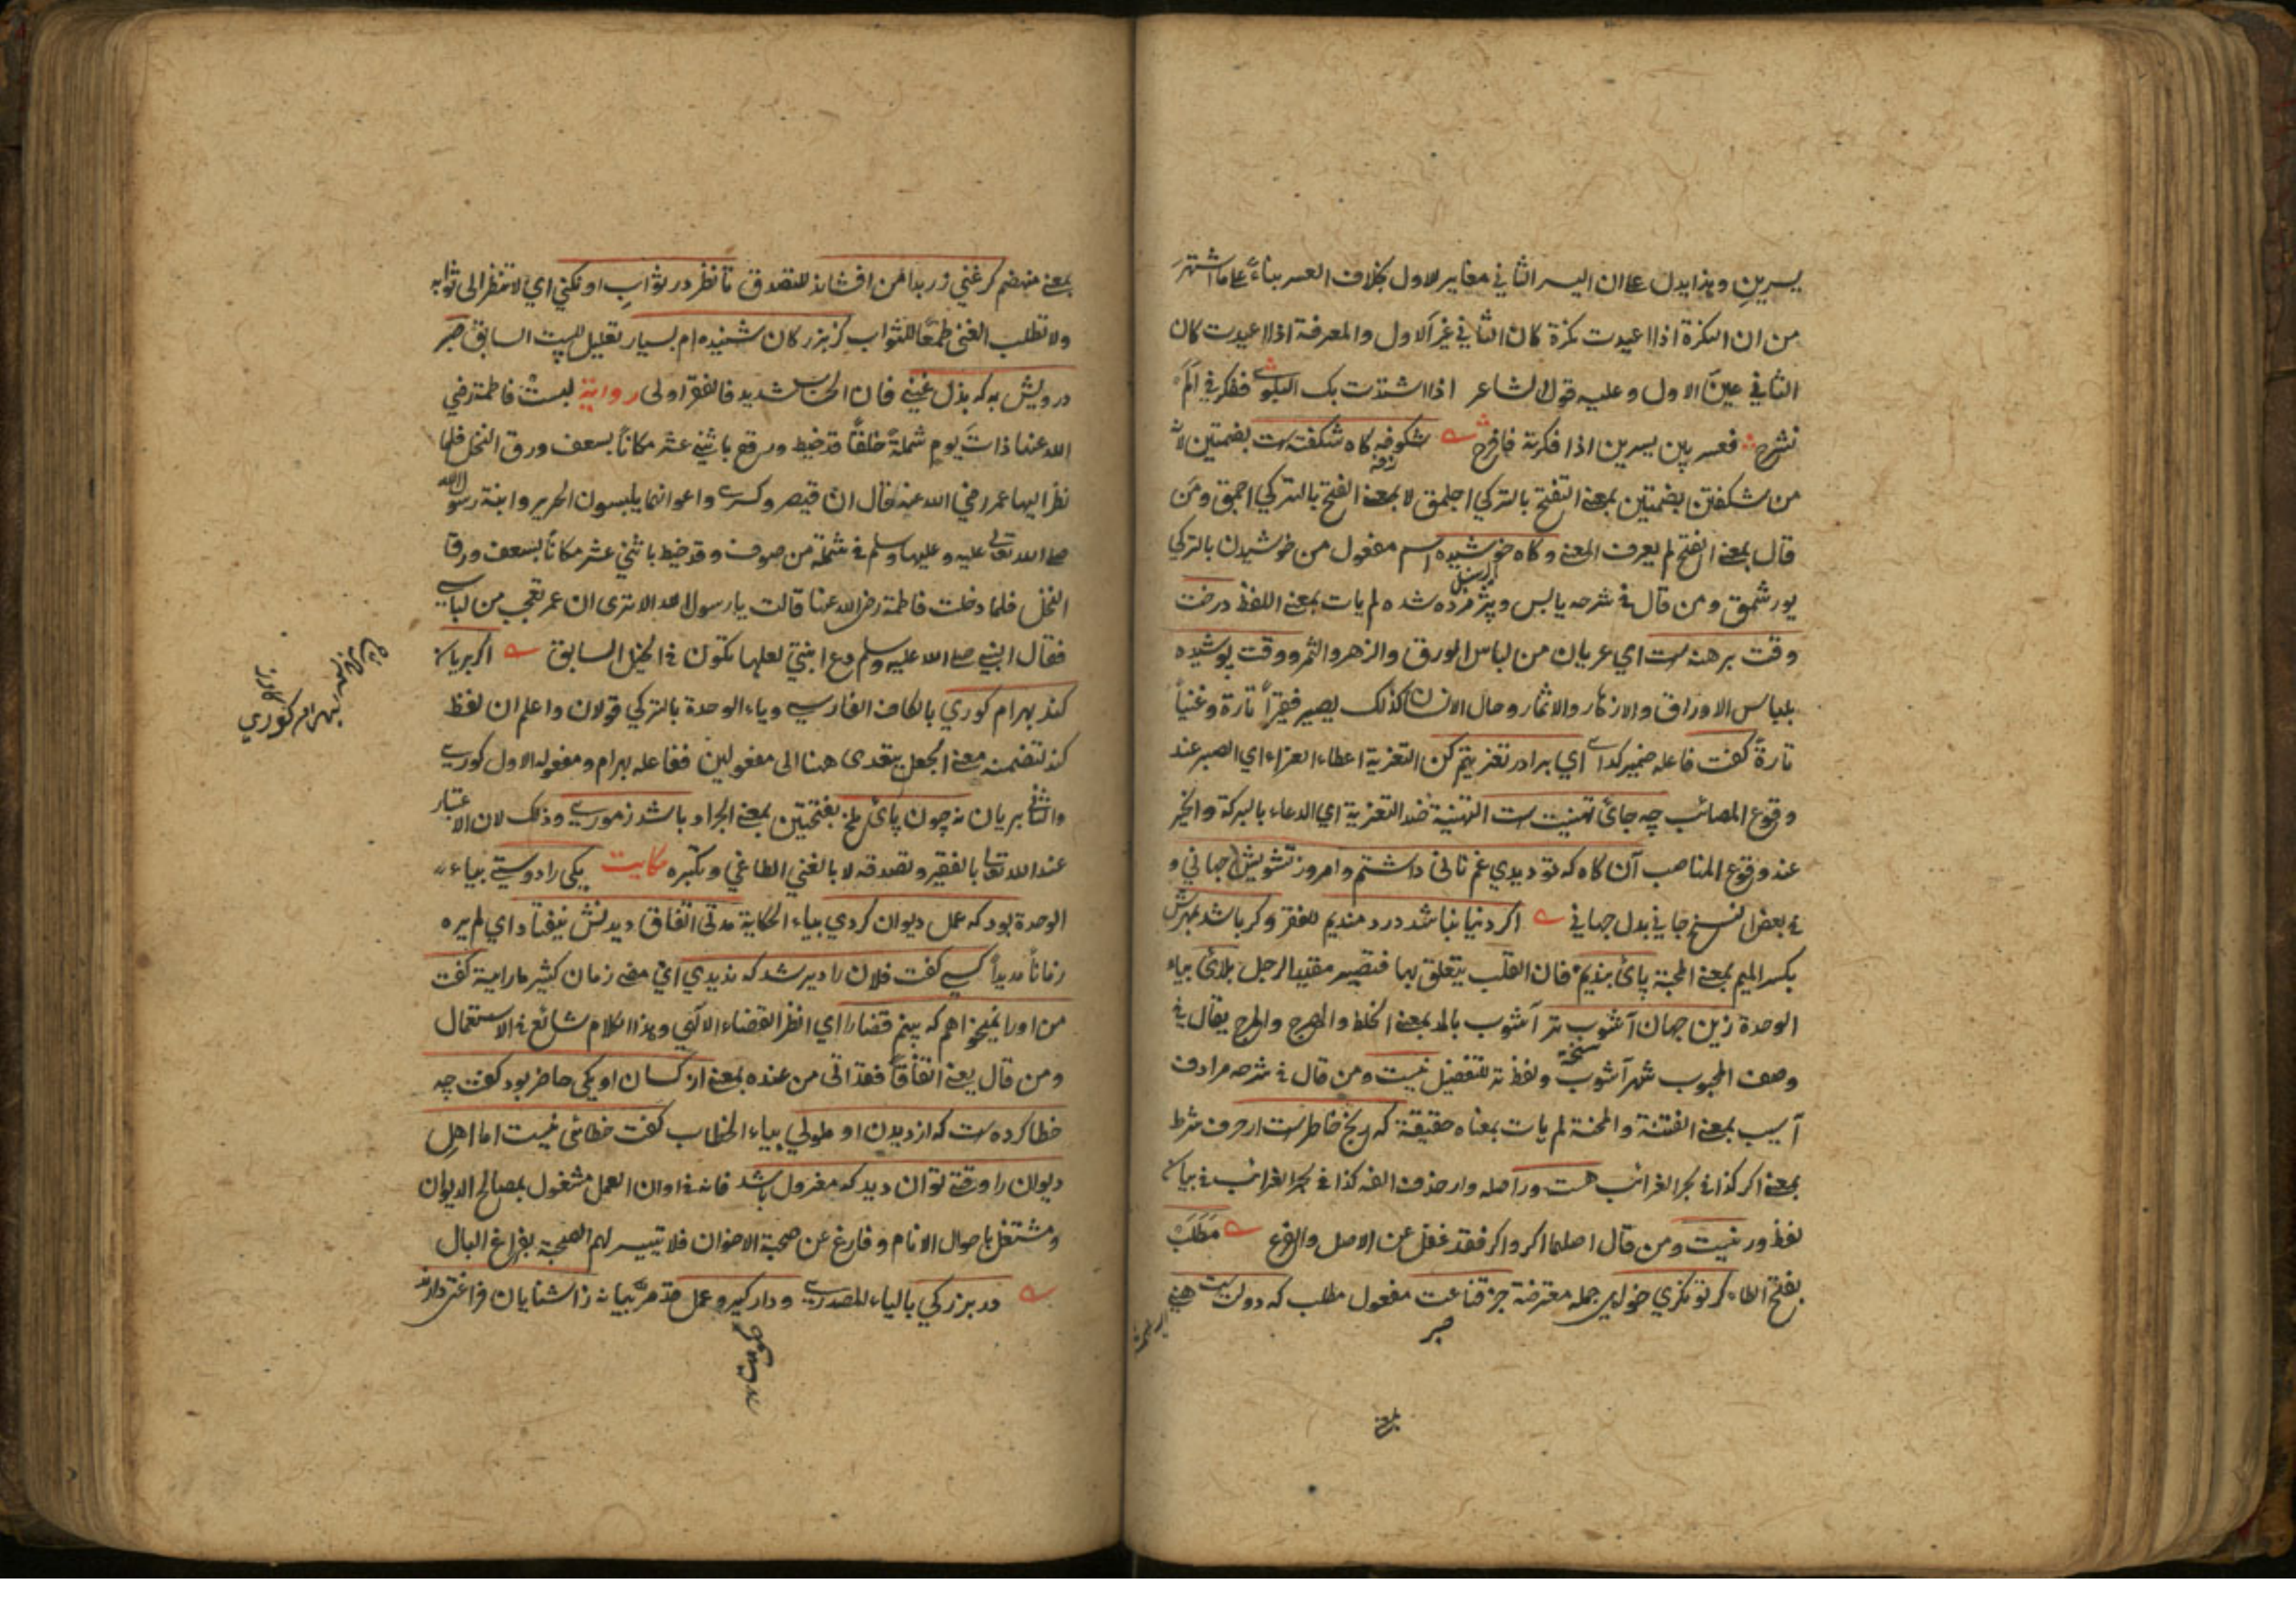 يسرين وهذا يدل على ان اليسر الثاني مغاير للاول بخلاف العسر بناءً على ما اشتهر
من ان النكرة اذا اعيدت نكرة كان الثاني غير الاول والمعرفة اذا اعيدت كان
الثاني عين الاول وعليه قول الشاعر اذا اشتدت بك البلوى ففكر في الم
نشرح فعسر بين يسرين اذا فكرته فافرح شكوفه كاه شكفتست بضمتين لانه
من شكفتن بضمتين بمعنى التفتح بالتركي اجلمق لا بمعنى الفتح بالتركي اجمق ومن
قال بمعنى الفتح لم يعرف المعنى وكاه خوشيده اسم مفعول من خوشيدن بالتركي
يورشمق ومن قال في شرحه يابس وپژمرده شده لم يات بمعنى اللفظ درخت
وقت برهنه ست اي عريان من لباس الورق والزهر والثمر ووقت پوشيده
بلباس الاوراق والازهار والاثمار وحال الانسان كذلك يصير فقيراً تارة وغنياً
تارةً كفت فاعله ضمير كدا اي برادر تعزيتم كن التعزية اعطاء العزاء اي الصبر عند
وقوع المصائب چه جائ تهنيت ست التهنية ضد التعزية اي الدعاء بالبركة والخير
عند وقوع المناصب آن كاه كه تو ديدي غم ناني داشتم وامروز تشويش جهاني و
في بعض النسخ جاني بدل جهاني اكر دنيا نباشد دردمنديم للفقر وكر باشد بمهرش
بكسر الميم بمعنى المحبة پائ بنديم فان القلب يتعلق بها فتصير مقيد الرجل بلائ بياء
الوحدة زين جهان آشوب تر آشوب بالمد بمعنى الخلط والهرج والمرج يقال في
وصف المحبوب شهر آشوب ولفظ تر للتفضيل نيست ومن قال في شرحه مرادف
آسيب بمعنى الفتنة والمحنة لم يات بمعناه حقيقة كه رنج خاطرست ار حرف شرط
بمعنى اكر كذا في بحر الغرائب هست ور اصله وار حذف الفه كذا في بحر الغرائب في بيان
لفظ ور نيست ومن قال اصلهما اكر واكر فقد غفل عن الاصل والفرع مطلب
بفتح الطاء كر توانكري خواهي جمله معترضة جز قناعت مفعول مطلب كه دولتيست هني
بمعنى منهضم كر غني زر بدامن افشاند للتصدق تا نظر در ثواب او نكني اي لا تنظر الى ثوابه
ولا تطلب الغنى طمعاً للثواب كز بزركان شنيده ام بسيار تعليل للبيت السابق صبر
درويش به كه بذل غني فان الحساب شديد فالفقر اولى رواية لبست فاطمة رضي
الله عنها ذات يوم شملةً خلقاً قد خيط ورقع باثني عشر مكاناً بسعف ورق النخل فلما
نظر اليها عمر رضي الله عنه قال ان قيصر وكسرى واعوانهما يلبسون الحرير وابنة رسول الله
صلى الله تعالى عليه وعليها وسلم في شملة من صوف وقد خيط باثني عشر مكاناً بسعف ورق
النخل فلما دخلت فاطمة رضى الله عنها قالت يا رسول الله الا ترى ان عمر تعجب من لباسي
فقال النبي صلى الله عليه وسلم دع ابنتي لعلها تكون في الخيل السابق اكر بريان
كند بهرام كوري بالكاف الفارسي وياء الوحدة بالتركي قولان واعلم ان لفظ
كند لتضمنه معنى الجعل يتعدى هنا الى مفعولين ففاعله بهرام ومفعوله الاول كوري
والثاني بريان نه چون پائ ملخ بفتحتين بمعنى الجراد باشد زموري وذلك لان الاعتبار
عند الله تعالى بالفقير وتصدقه لا بالغني الطاغي وتكبره حكايت يكى را دوستي بياء
الوحدة بود كه عمل ديوان كردي بياء الحكاية مدتى اتفاق ديدنش نيفتاد اي لم يره
زماناً مديداً كسي كفت فلان را دير شد كه نديدي اي مضى زمان كثير ما رايته كفت
من اورا نميخواهم كه بينم قضا را اي انظر القضاء الآلهي وهذا الكلام شائع في الاستعمال
ومن قال يعني اتفاقاً فقد اتى من عنده بمعنى از كسان او يكى حاضر بود كفت چه
خطا كرده ست كه از ديدن او ملولي بياء الخطاب كفت خطائى نيست اما اهل
ديوان را وقتى توان ديد كه معزول باشد فانه في اوان العمل مشغول بمصالح الديوان
ومشتغل باحوال الانام وفارغ عن صحبة الاخوان فلا تتيسر لهم الصحبة بفراغ البال
در بزركي بالياء المصدري ودار كير وعمل قد مر بيانه ز اشنايان فراغتى دارند
بهرام كوري